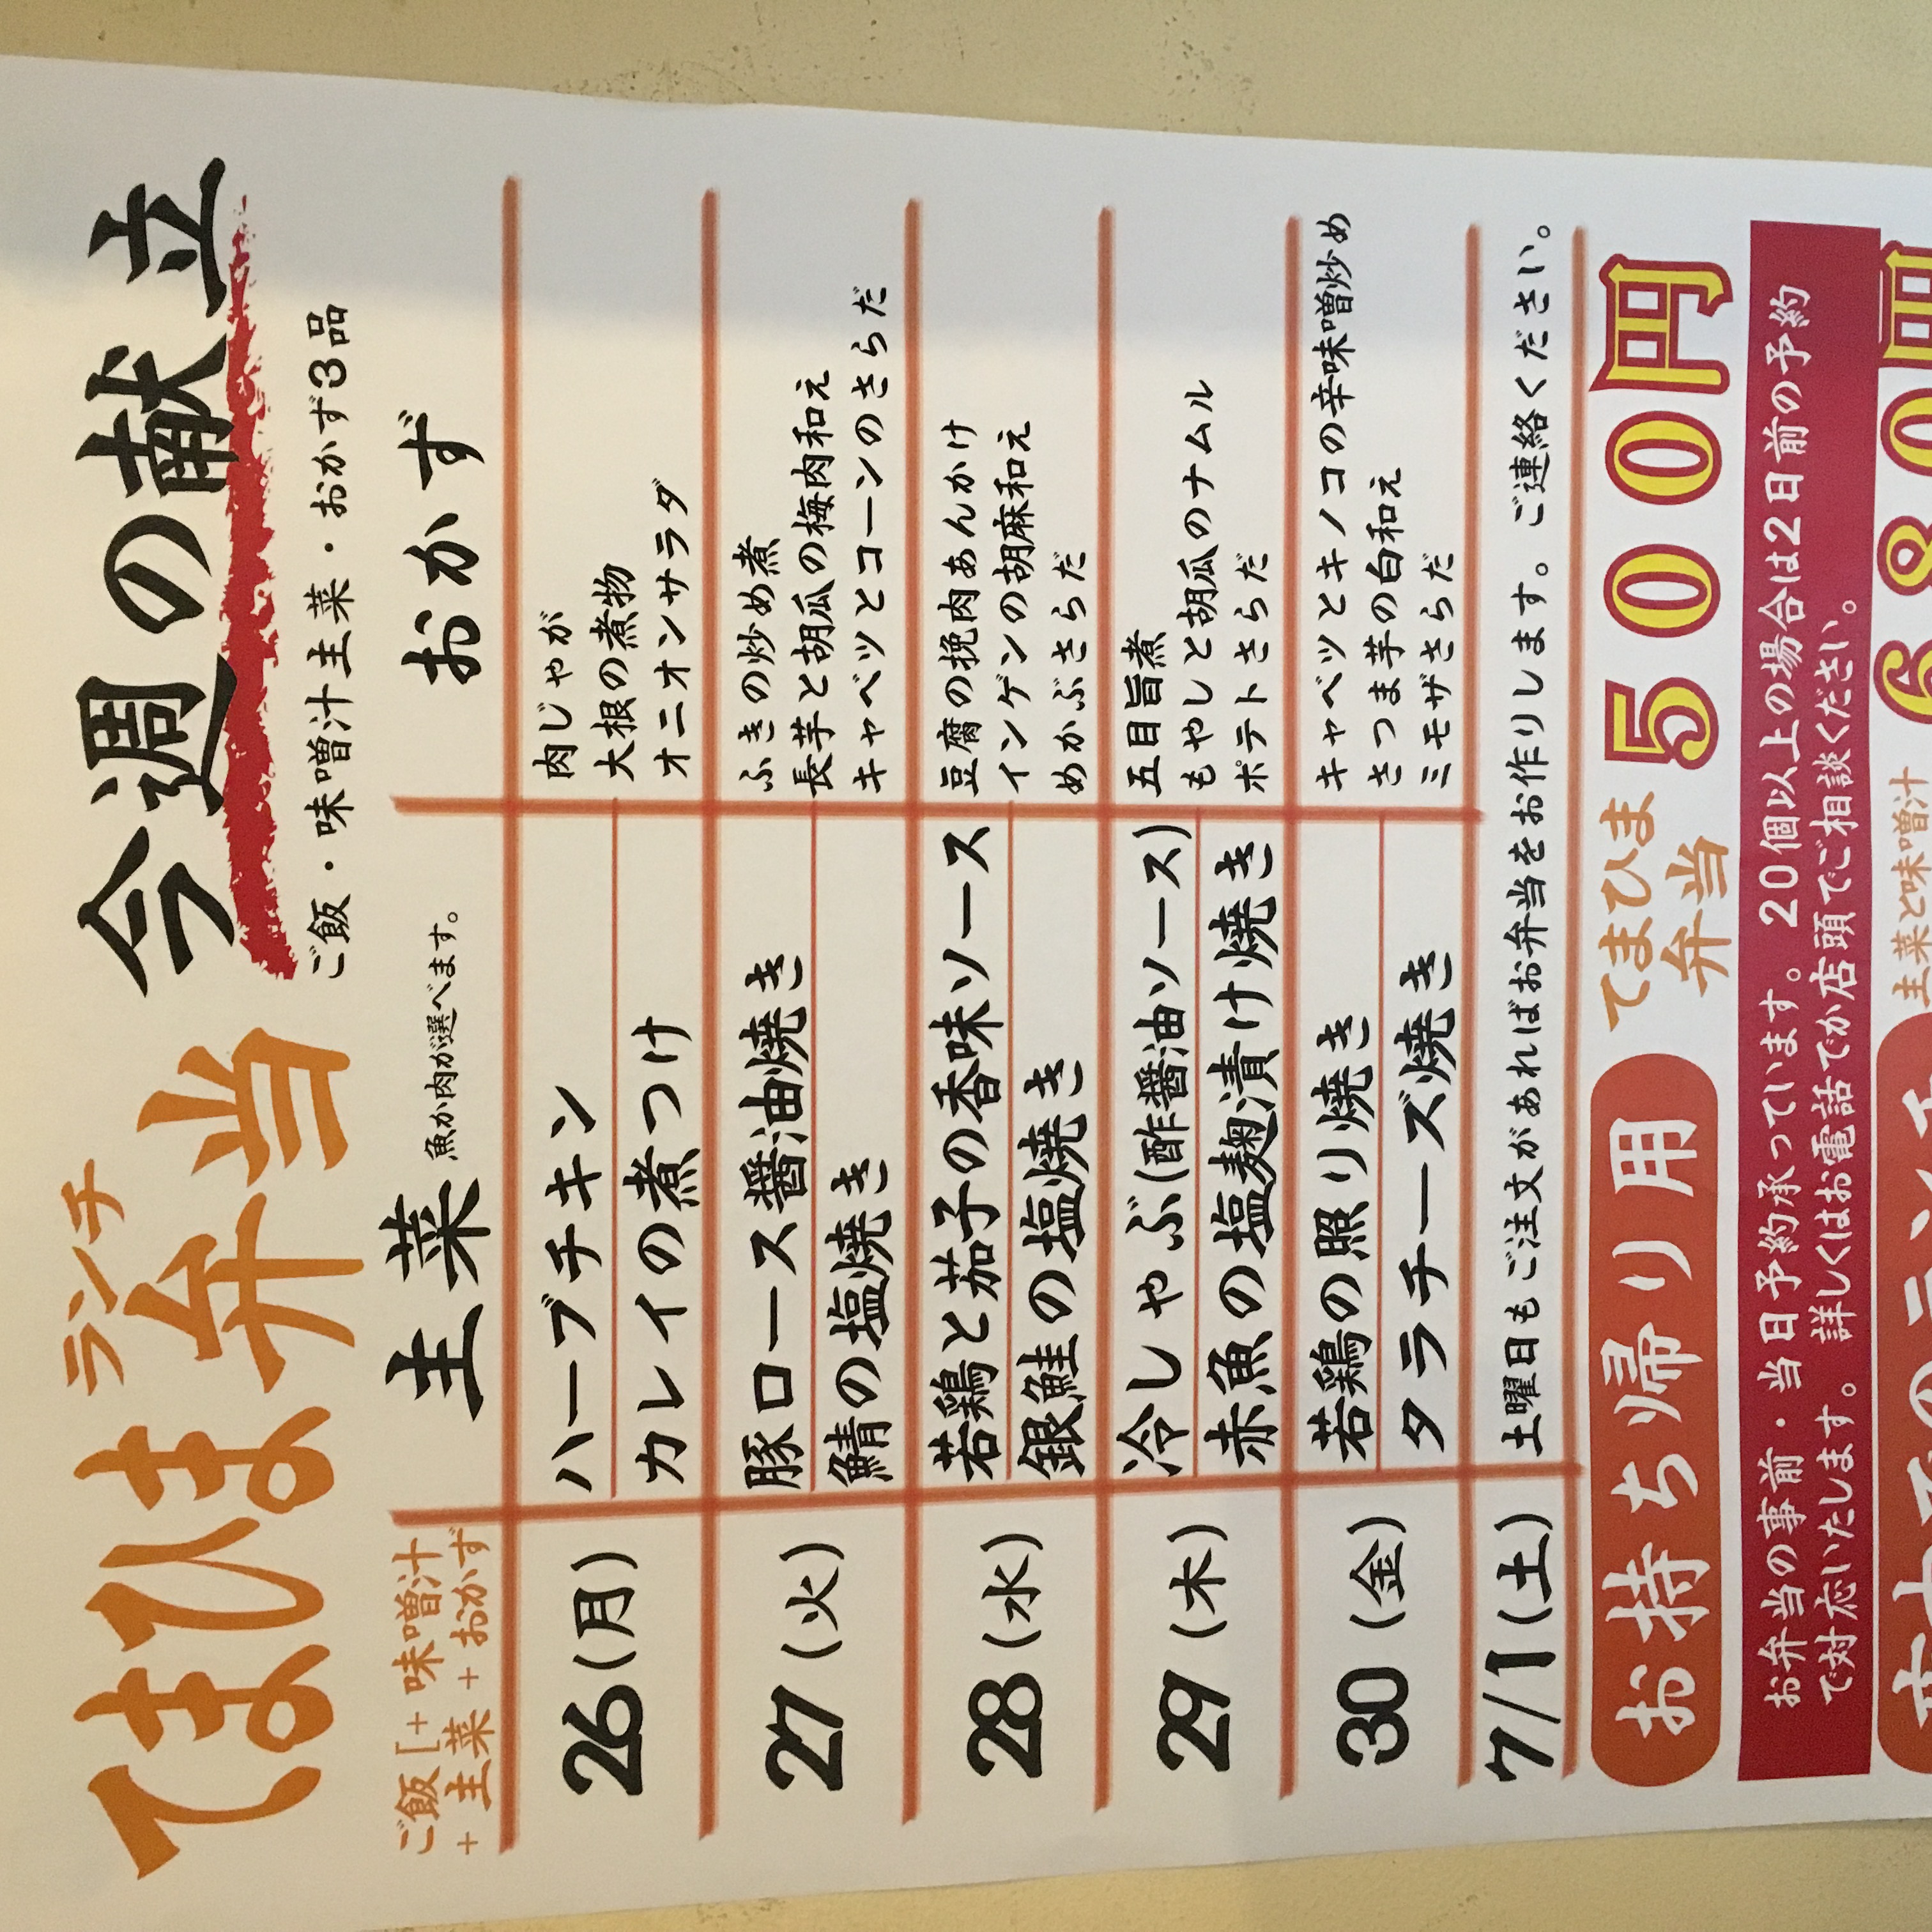 ランチ
てまひま弁当
今週の献立
ご飯・味噌汁主菜・おかず3品
ご飯[+味噌汁
+主菜+おかず
主菜 魚か肉が選べます。
おかず
26(月)
ハーブチキン
カレイの煮つけ
肉じゃが
大根の煮物
オニオンサラダ
27(火)
豚ロース醤油焼き
鯖の塩焼き
ふきの炒め煮
長芋と胡瓜の梅肉和え
キャベツとコーンのさらだ
28(水)
若鶏と茄子の香味ソース
銀鮭の塩焼き
豆腐の挽肉あんかけ
インゲンの胡麻和え
めかぶさらだ
29(木)
冷しゃぶ(酢醤油ソース)
赤魚の塩麹漬け焼き
五目旨煮
もやしと胡瓜のナムル
ポテトさらだ
30(金)
若鶏の照り焼き
タラチーズ焼き
キャベツとキノコの辛味噌炒め
さつま芋の白和え
ミモザさらだ
7/1(土)
土曜日もご注文があればお弁当をお作りします。ご連絡ください。
お持ち帰り用
てまひま
弁当
500円
お弁当の事前・当日予約承っています。20個以上の場合は2日前の予約
で対応いたします。詳しくはお電話でか店頭でご相談ください。
主菜と味噌汁
680円